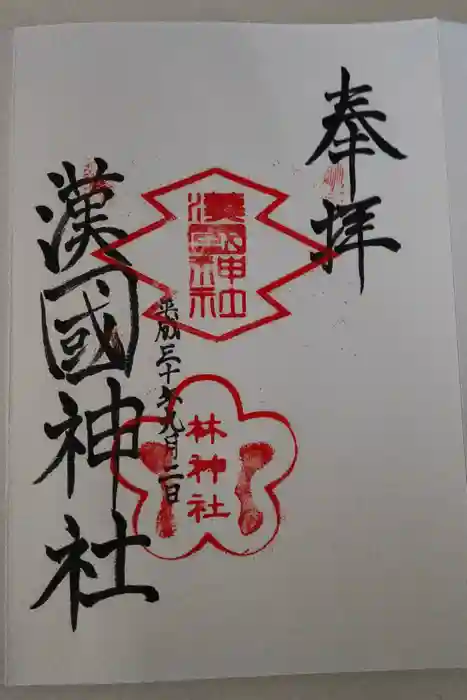 奉拝
漢國神社
林神社
平成三十年九月二日
漢國神社